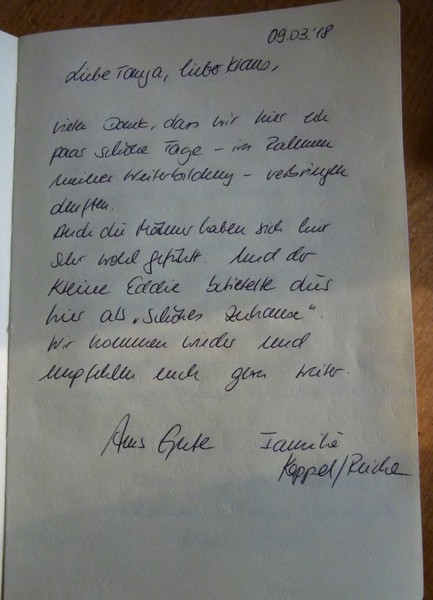 09.03.'18
Liebe Tanja, lieber Klaus,
vielen Dank, dass wir hier ein
paar schöne Tage – im Rahmen
meiner Weiterbildung – verbringen
durften.
Auch die Männer haben sich hier
sehr wohl gefühlt. Und der
kleine Eddie betitelte dies
hier als „schönes Zuhause".
Wir kommen wieder und
empfehlen euch gern weiter.
Alles Gute Familie
Koppel/Reiche